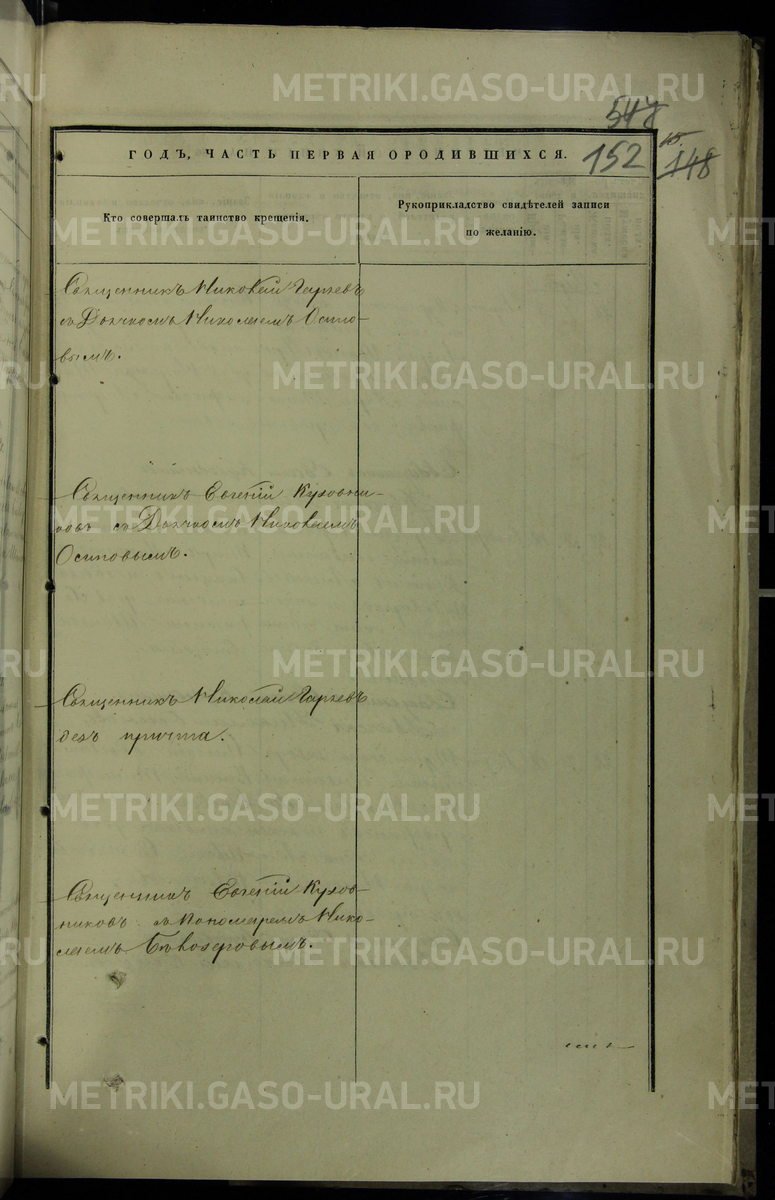 547
152
148
ГОДЪ, ЧАСТЬ ПЕРВАЯ ОРОДИВШИХСЯ.
Кто совершалъ таинство крещенія.
Рукоприкладство свидѣтелей записи
по желанію.
Священникъ Николай
съ Дьячкомъ Николаемъ Осипо-
вымъ.
Священникъ Евгеній Кузовни-
ковъ съ Дьячкомъ Николаемъ
Осиповымъ.
Священникъ Николай
безъ причта.
Священникъ Евгеній Кузов-
никовъ съ Пономаремъ Нико-
лаемъ Бѣлозеровымъ.
METRIKI.GASO-URAL.RU